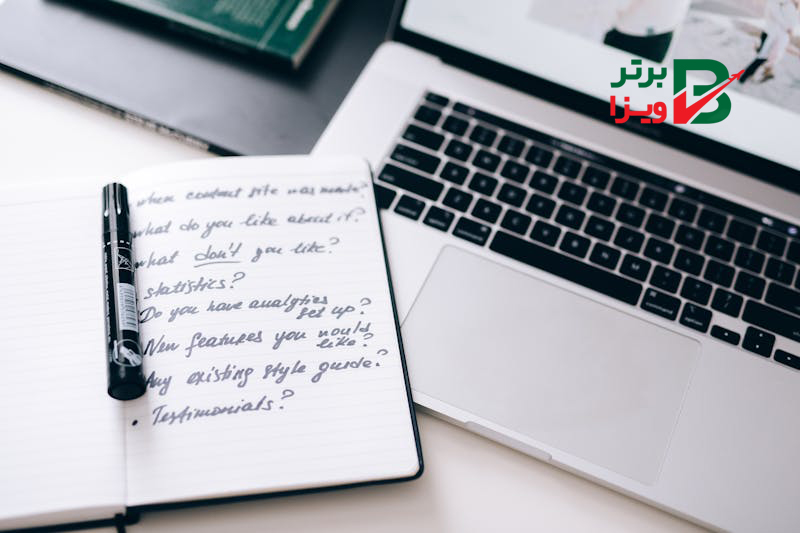 برتر
ویزا
B
when contact site was made?
what do you like about it?
what don't you like?
statistics?
Do you have analytics
set up?
New features you would
like?
Any existing style guide?
• Testimonials?
command
option